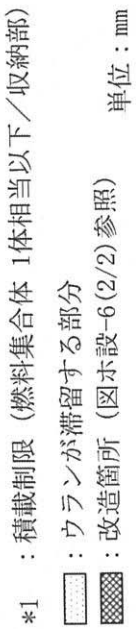 *1 ：積載制限（燃料集合体 1体相当以下／収納部）
：ウランが滞留する部分
：改造箇所（図ホ設-6(2/2)参照）
単位：mm